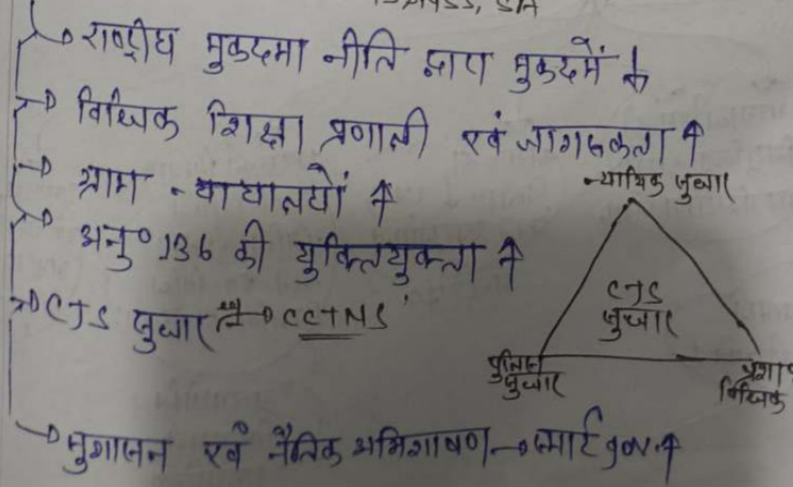 राष्ट्रीय मुकदमा नीति द्वारा मुकदमें ↓
विधिक शिक्षा प्रणाली एवं जागरूकता ↑
ग्राम न्यायालयों ↑
न्यायिक सुधार
अनु० 136 की युक्तियुक्तता ↑
CJS सुधार → CCTNS
CJS
सुधार
पुलिस
सुधार
विधिक
सुशासन एवं नैतिक अभिशासन → स्मार्ट gov. ↑